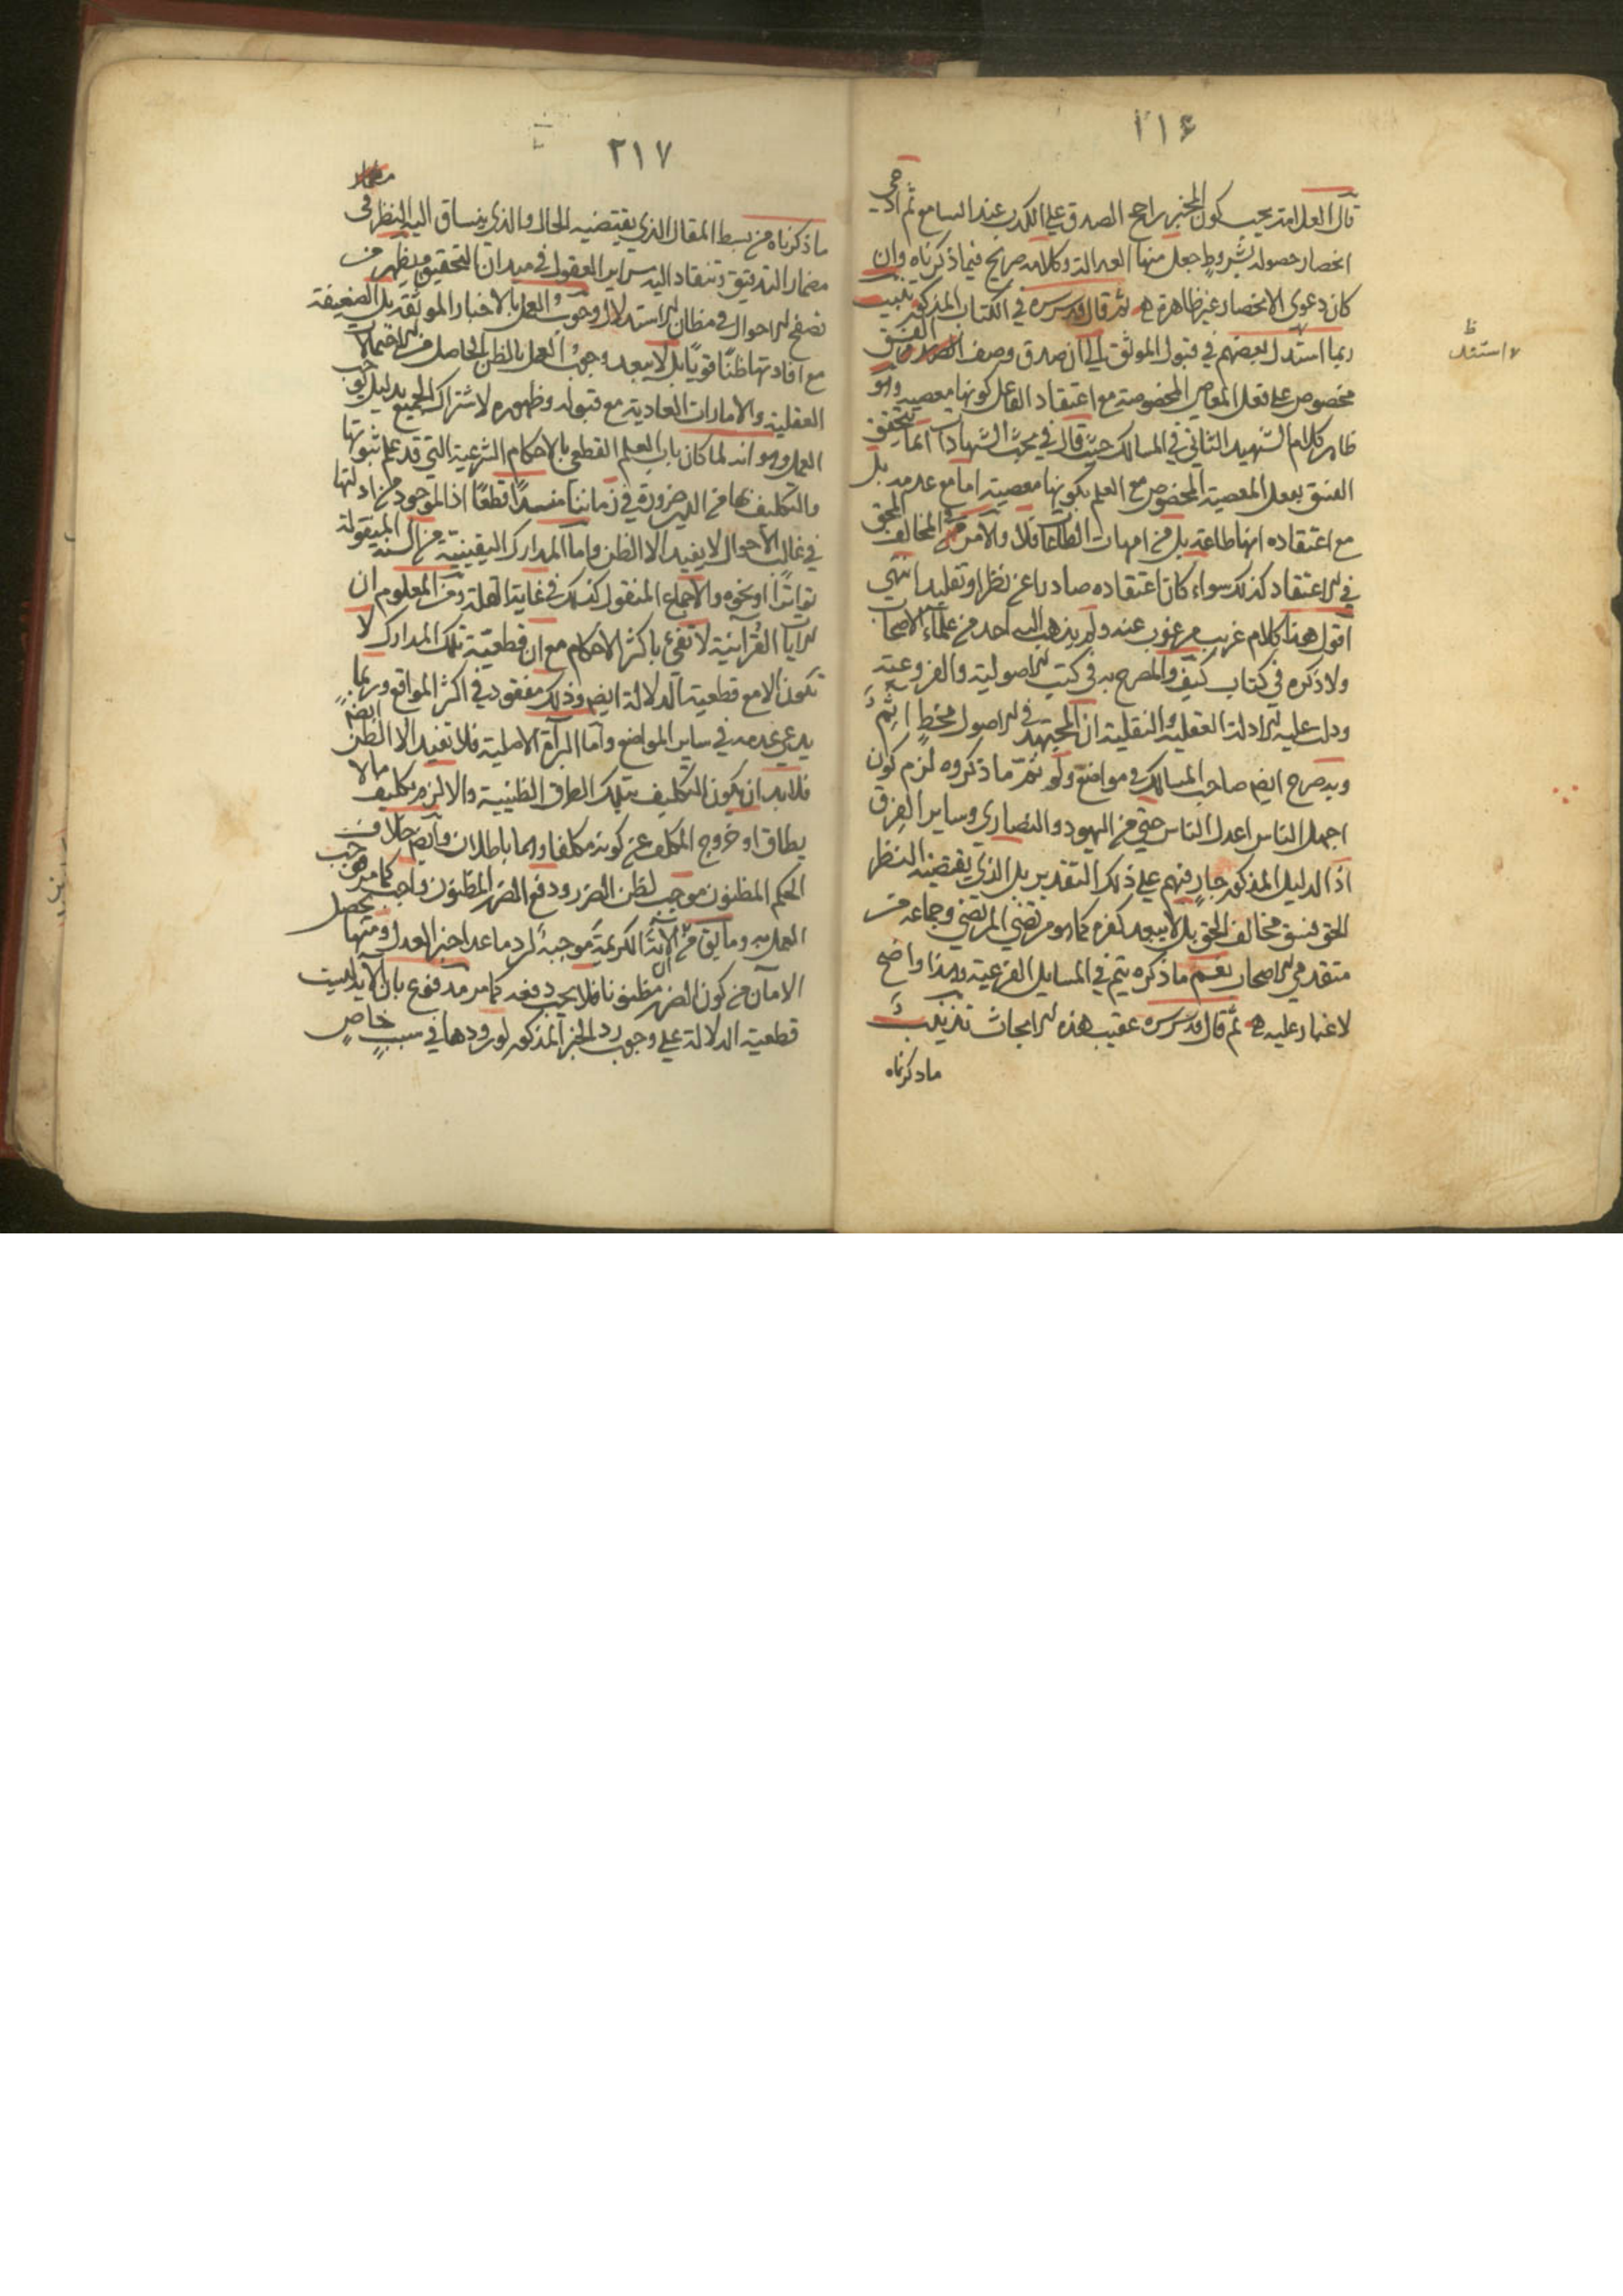 ٢١٦
قال العلامة يجب كون المخبر راجح الصدق على الكذب عند السامع ثم ادعى
انحصار حصوله بشروط جعل منها العدالة وكلامه صريح فيما ذكرناه وان
كان دعوى الانحصار غير ظاهرة ثم قال قدس سره في الكتاب المذكور تثبيت
ربما استدل بعضهم في قبول الموثق الى ان صدق وصف الفسق
مخصوص على فعل المعاصي المخصوصة مع اعتقاد الفاعل كونها معصية وهو
ظاهر كلام الشهيد الثاني في المسالك حيث قال في مبحث الشهادات انما يتحقق
الفسق بفعل المعصية المخصوص مع العلم بكونها معصية اما مع عدمه بل
مع اعتقاده انها طاعة بل من امهات الطاعات فلا والامر في المخالف للحق
في الاعتقاد كذلك سواء كان اعتقاده صادرا عن نظر او تقليد انتهى
اقول هذا كلام غريب مرغوب عنه ولم يذهب اليه احد من علماء الاصحاب
ولا ذكره في كتاب كيف والمصرح به في كتب الاصولية والفروعية
ودلت عليه الادلة العقلية والنقلية ان المجتهد في الاصول مخطٍ آثم
وبه صرح ايضا صاحب المسالك في مواضع ولو تم ما ذكروه لزم كون
اجهل الناس اعدل الناس حتى من اليهود والنصارى وساير الفرق
اذ الدليل المذكور جارٍ فيهم على ذلك التقدير بل الذي يقتضيه النظر
الحق فسق مخالف الحق بل لا يبعد كفره كما هو مرتضى المرتضى وجماعة من
متقدمي الاصحاب نعم ما ذكره يتم في المسايل الفرعية وهذا واضح
لا غبار عليه ثم قال قدس سره عقيب هذه الابحاث تذنيب
ما ذكرناه
ظ
استند
٢١٧
ما ذكرناه من بسط المقال الذي يقتضيه الحال والذي ينساق اليه النظر في
مضمار التدقيق وتنقاد اليه سراير العقول في ميدان التحقيق ويظهر من
تصفح الاحوال في مظان الاستدلال وجوب العمل بالاخبار الموثقة بل الضعيفة
مع افادتها ظنا قويا بل لا يبعد وجوب العمل بالظن الحاصل من الاحتمالات
العقلية والامارات العادية مع قبوله وظهوره لاشتراك الجميع بدليل يوجب
العمل وهو انه لما كان باب العلم القطعي بالاحكام الشرعية التي قد علم ثبوتها
والتكليف بها من الدين ضرورة في زماننا منسدا قطعا اذ الموجود من ادلتها
في غالب الاحوال لا يفيد الا الظن واما المدارك اليقينية من السنة المنقولة
تواترا او نحوه والاجماع المنقول كذلك في غاية القلة ومن المعلوم ان
الايات القرآنية لا تفئ باكثر الاحكام مع ان قطعية تلك المدارك لا
تكون الا مع قطعية الدلالة ايضا وذلك مفقود في اكثر المواقع وربما
يدعى عدمه في ساير المواضع واما البرآة الاصلية فلا تفيد الا الظن ايضا
فلا بد ان يكون التكليف بتلك الطرق الظنية والا لزم تكليف ما لا
يطاق او خروج المكلف عن كونه مكلفا وهما باطلان وايضا خلاف
الحكم المظنون موجب لظن الضرر ودفع الضرر المظنون واجب كما مر فيجب
العمل به وما يق من ان الآية الكريمة موجبة لرد ما عدا خبر العدل ومنها يحصل
الامان من كون الضرر مظنونا فلا يجب دفعه كما مر مدفوع بان الآية ليست
قطعية الدلالة على وجوب رد الخبر المذكور لورودها في سبب خاص